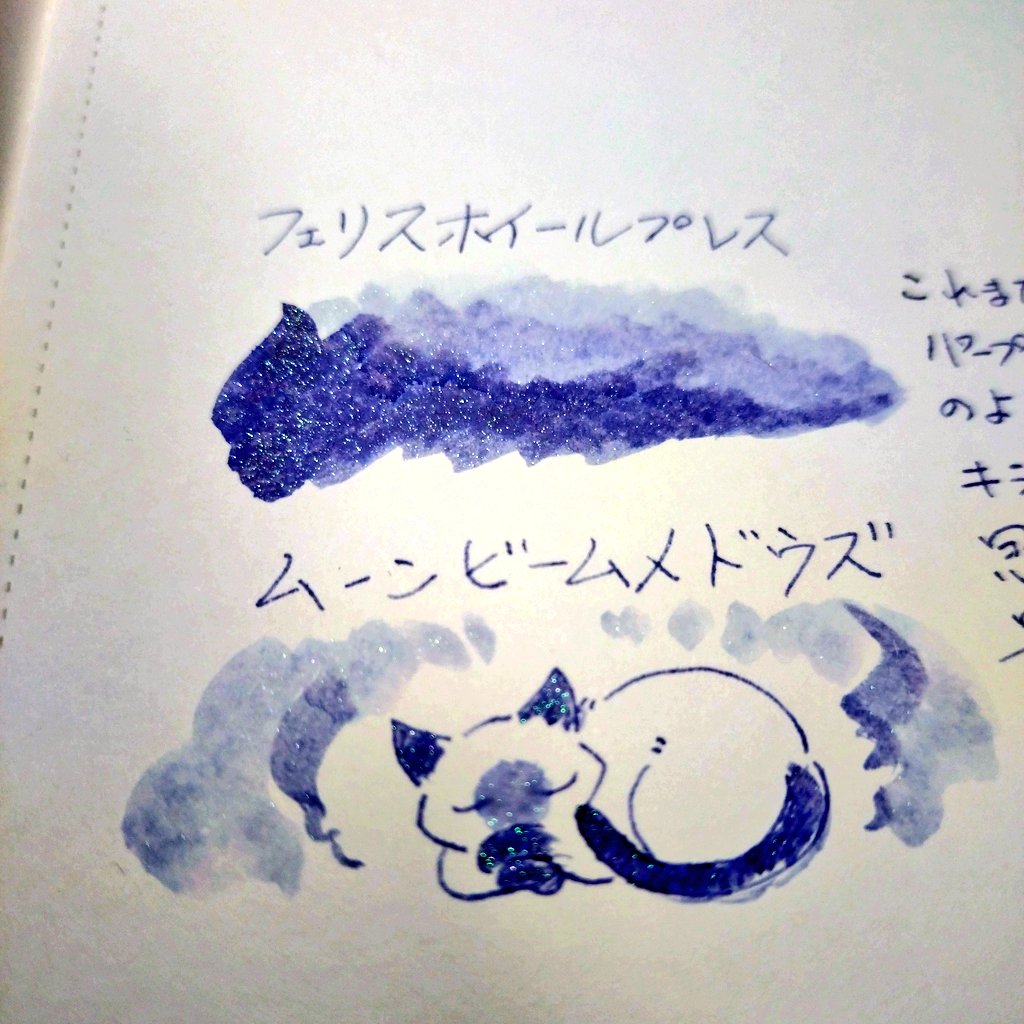 フェリスホイールプレス
ムーンビームメドウズ
これま
パープ
のよ
キラ
思